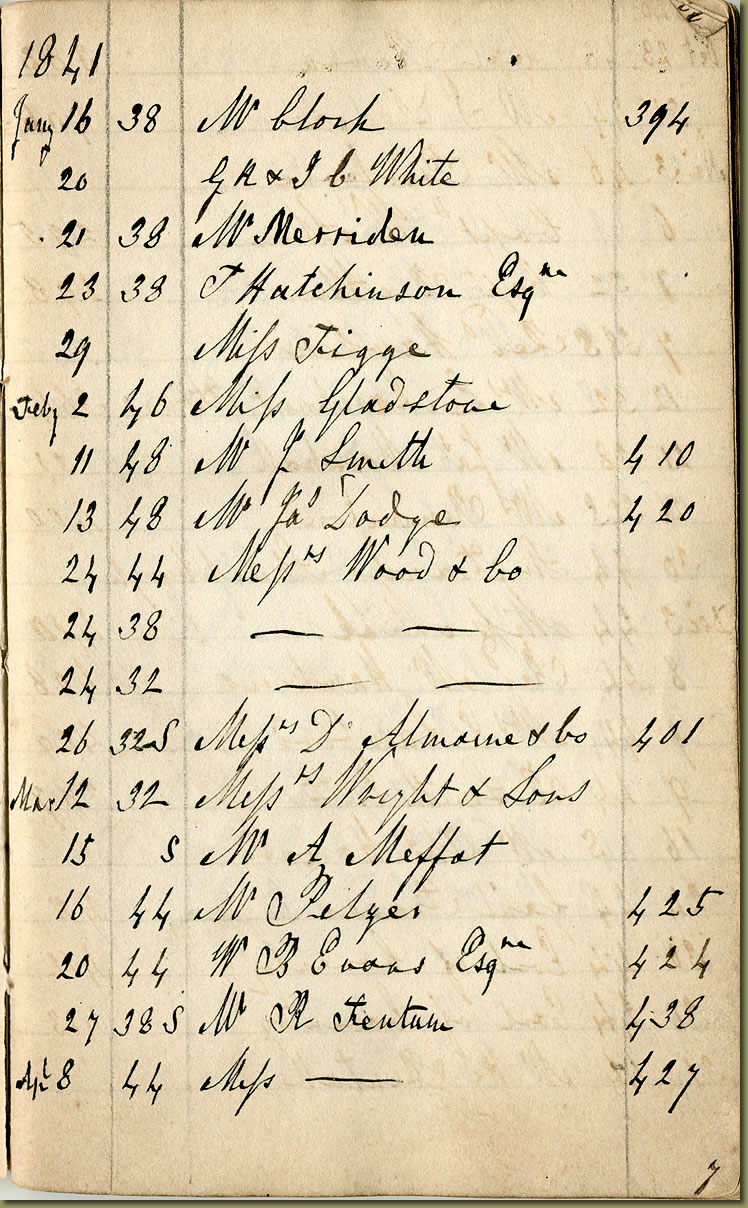 1841
Jany 16 38 Mr Clark 394
20 G A & J C White
21 38 Mr Merriden
23 38 T Hatchinson Esqre
29 Miss Figge
Feby 2 46 Miss Gladstone
11 48 Mr J Smith 410
13 48 Mr Jas Dodge 420
24 44 Messrs Wood & Co
24 38 — —
24 32 — —
26 32 S Messrs D'Almaine & Co 401
Mar 12 32 Messrs Wright & Sons
15 S Mr A Meffat
16 44 Mr Pelzer 425
20 44 W B Evans Esqre 424
27 38 S Mr R Fentum 438
Apl 8 44 Miss — 427
7